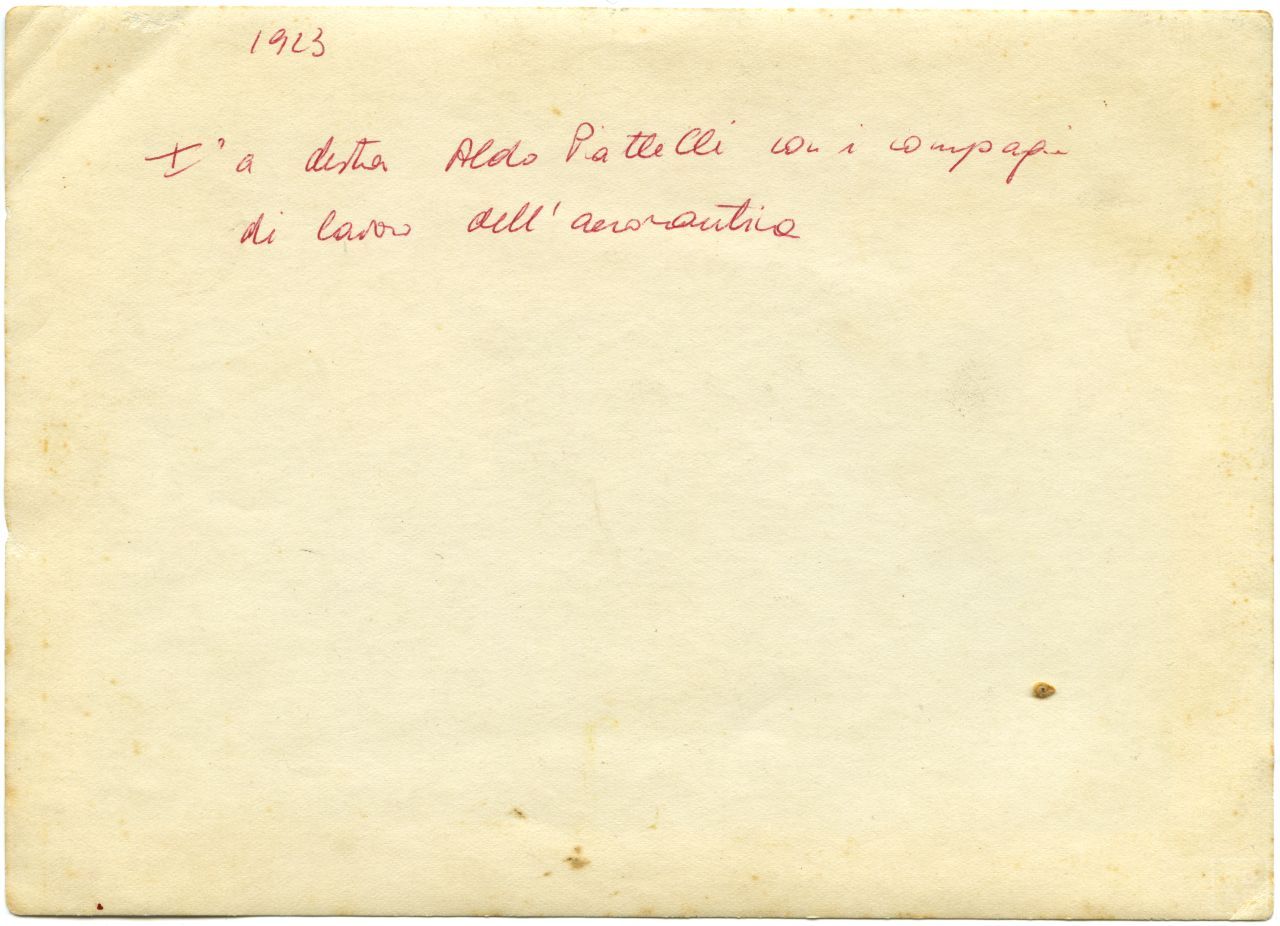 1923
I° a destra Aldo Piattelli con i compagni
di lavoro dell'aeronautica